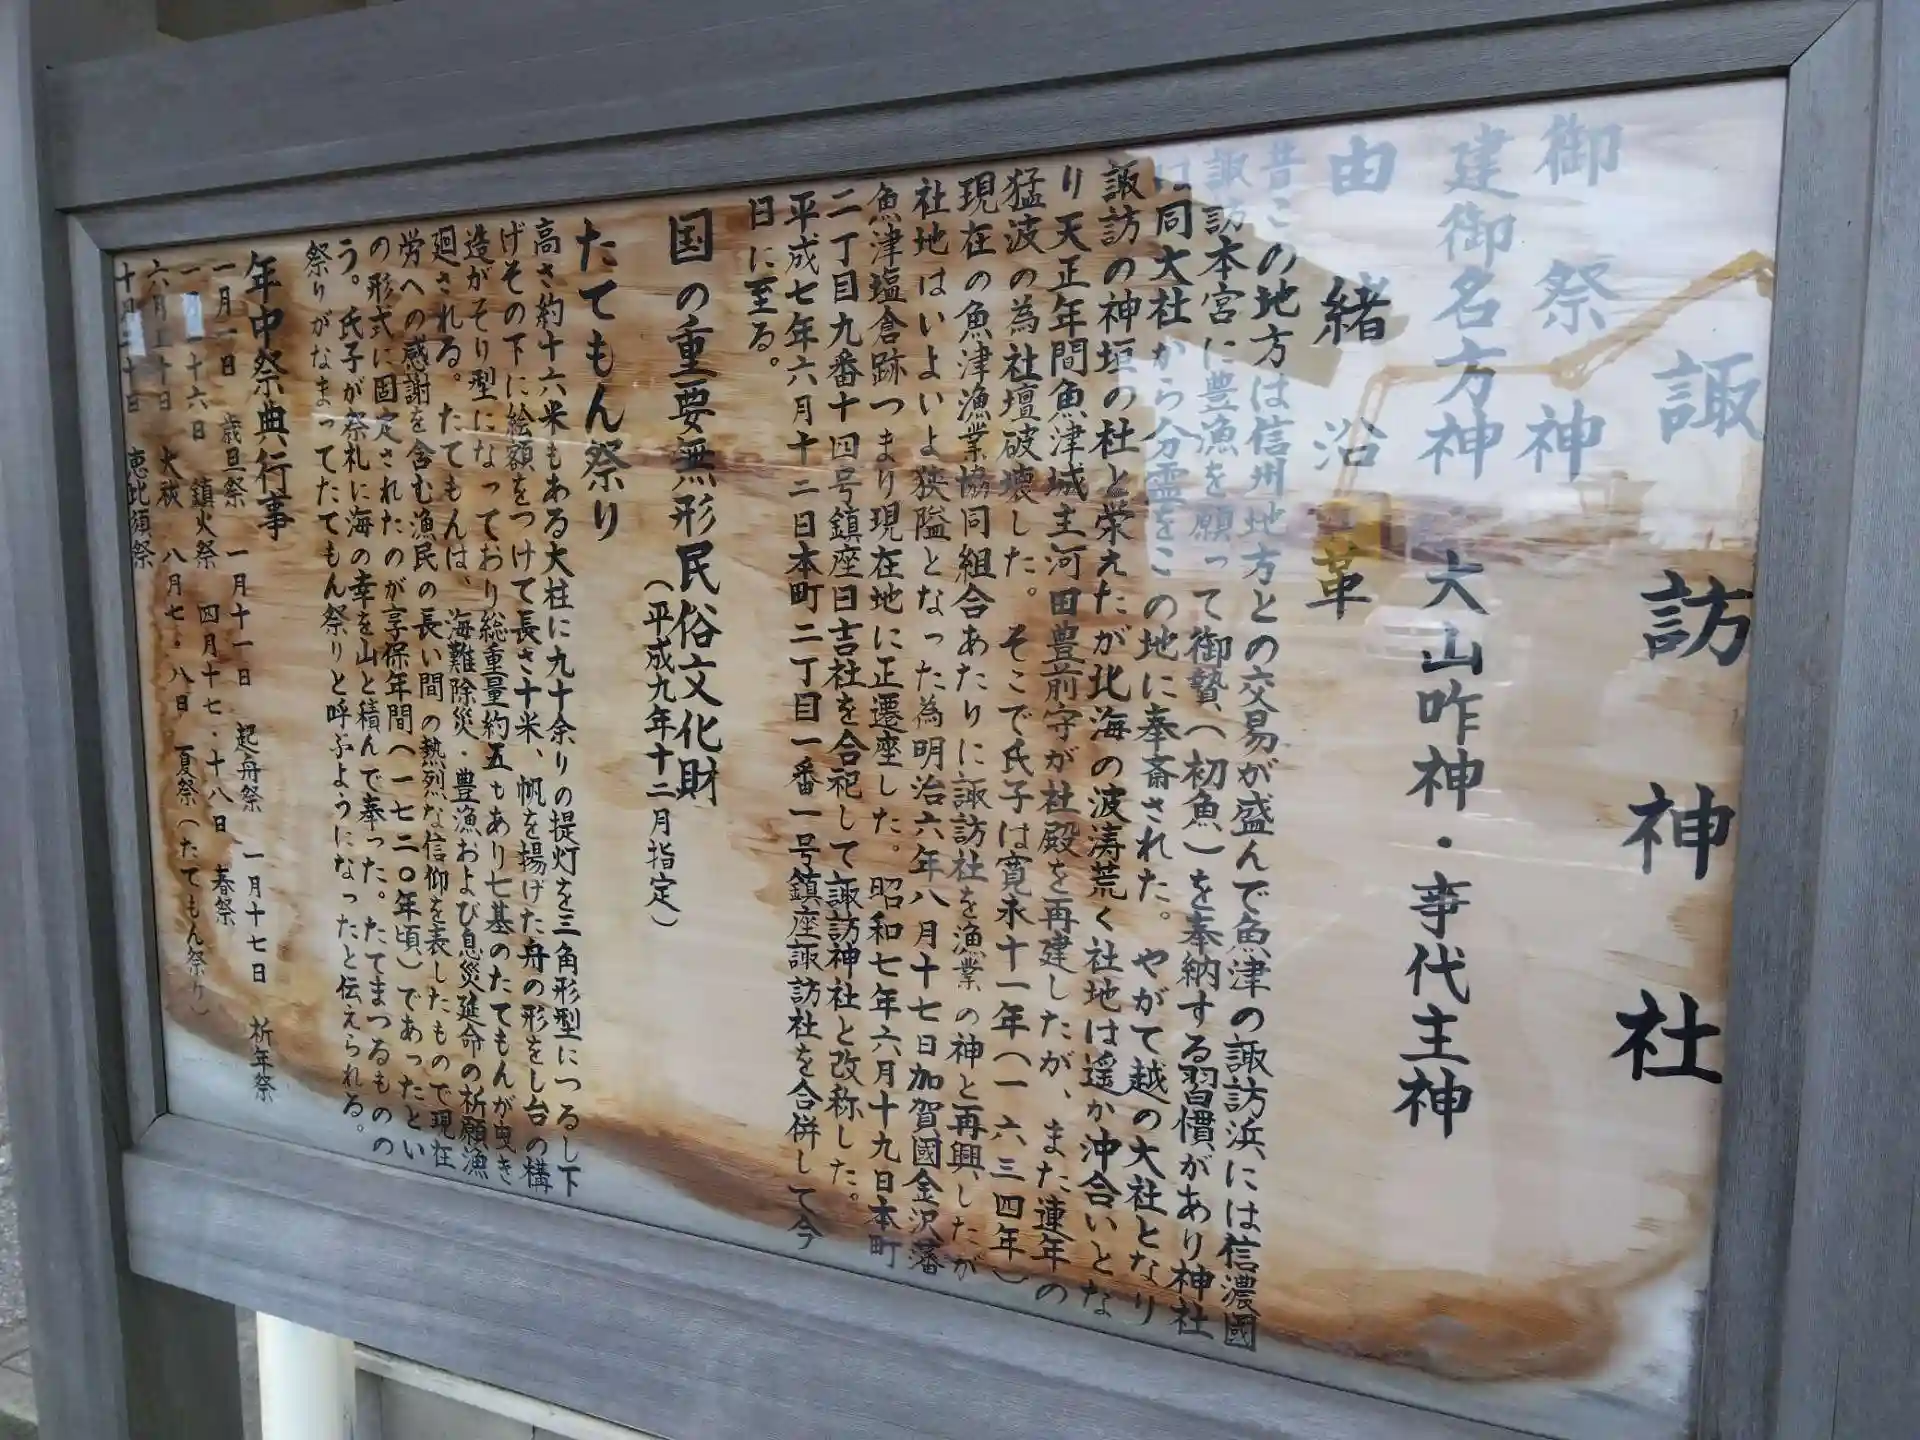 諏訪神社
御祭神
建御名方神 大山咋神・事代主神
由緒沿革
昔この地方は信州地方との交易が盛んで魚津の諏訪浜には信濃國
諏訪本宮に豊漁を願って御贄(初魚)を奉納する習慣があり神社
は同大社から分霊をこの地に奉斎された。やがて越の大社となり
諏訪の神垣の杜と栄えたが北海の波涛荒く社地は遥か沖合いとな
り天正年間魚津城主河田豊前守が社殿を再建したが、また連年の
猛波の為社壇破壊した。そこで氏子は寛永十一年(一六三四年)
現在の魚津漁業協同組合あたりに諏訪社を漁業の神と再興したが
社地はいよいよ狭隘となった為明治六年八月十七日加賀國金沢藩
魚津塩倉跡つまり現在地に正遷座した。昭和七年六月十九日本町
二丁目九番十四号鎮座日吉社を合祀して諏訪神社と改称した。
平成七年六月十二日本町二丁目一番一号鎮座諏訪社を合併して今
日に至る。
国の重要無形民俗文化財
(平成九年十二月指定)
たてもん祭り
高さ約十六米もある大柱に九十余りの提灯を三角形型につるし下
げその下に絵額をつけて長さ十米、帆を揚げた舟の形をし台の構
造がそり型になっており総重量約五tあり七基のたてもんが曳き
廻される。たてもんは、海難除災・豊漁および息災延命の祈願漁
労への感謝を含む漁民の長い間の熱烈な信仰を表したもので現在
の形式に固定されたのが享保年間(一七二〇年頃)であったとい
う。氏子が祭礼に海の幸を山と積んで奉った。たてまつるものの
祭りがなまってたてもん祭りと呼ぶようになったと伝えられる。
年中祭典行事
一月一日 歳旦祭 一月十一日 起舟祭 一月十七日 祈年祭
十六日 鎮火祭 四月十七・十八日 春祭
六月三十日 大祓 八月七・八日 夏祭(たてもん祭り)
十月二十日 恵比須祭